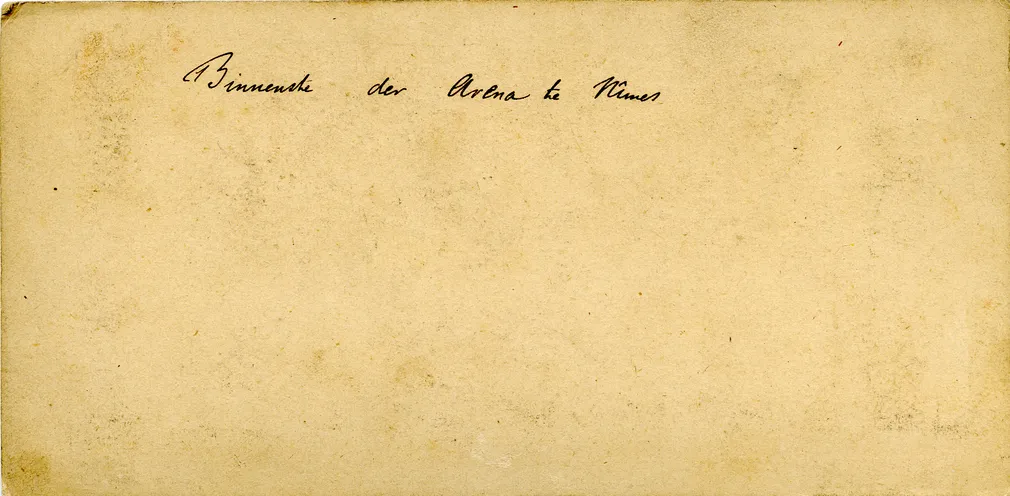 Binnenste der Arena te Nîmes